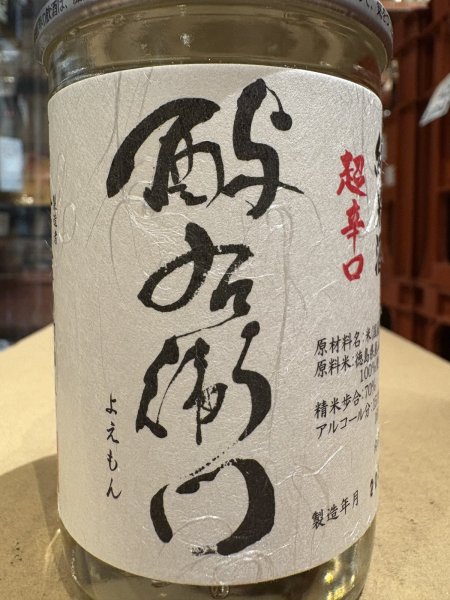 酔右衛門
よえもん
超辛口
原材料名:米
原料米:徳島県
100%
精米歩合:70%
アルコール分:
製造年月